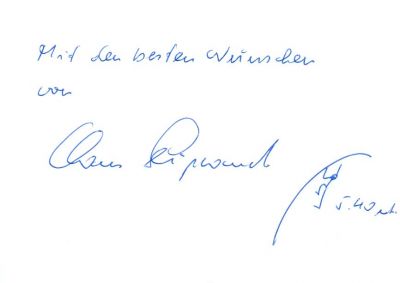 Mit den besten Wünschen
von
5.40 m